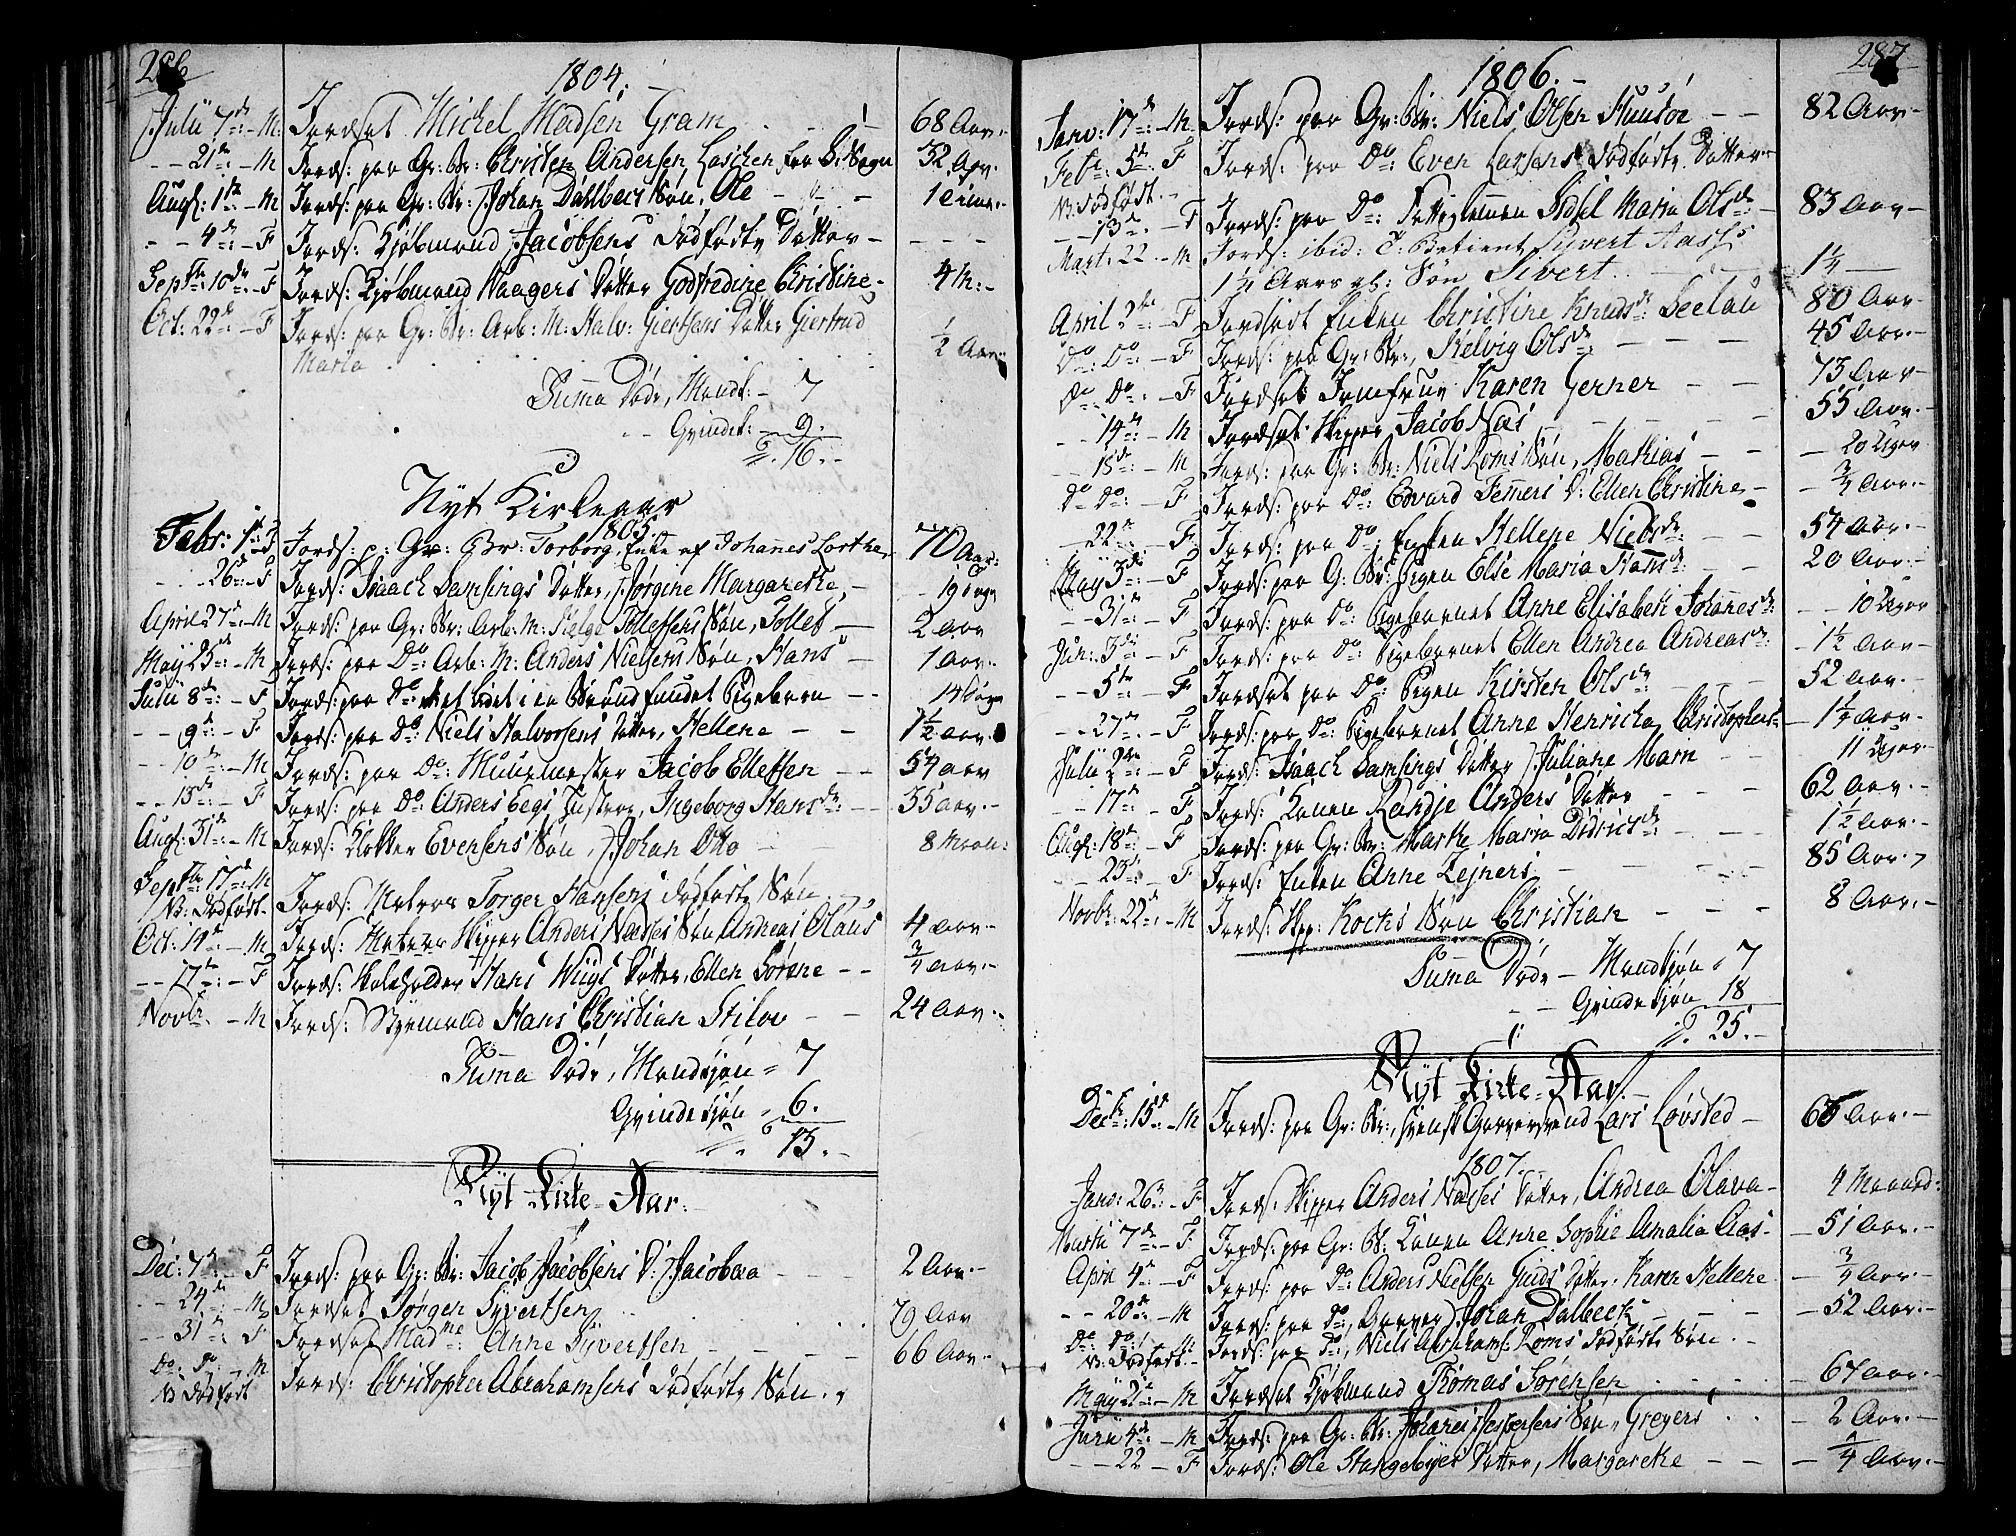 286
1804.
Julii 7de - M. Jordset Michel Madsen Gram 68 Aar.
- - 21de - M Jords: paa Gr: Br: Christen Andersen fra B: Sogn 32 Aar.
Augs: 1ste - M Jords: paa Gr: Br: Johan Dahlbecs Søn, Ole
- - 4de - F Jords: Kjøbmand Jacobsens dødfødte Datter - - - -
Septbr: 10de - F Jords: Kjøbmand Haagers Datter Godfredine Christine - 4 M: -
Oct: 22de - F Jords: paa Gr: Br: Arb: M: Halv: Giertsens Datter Giertrud
Maria ½ Aar.
Summa Døde, Mandk: - 7
- - Qvindek: - 9.
S. 16. -
Nyt Kirkeaar
1805.
Febr: 1st F Jords: p: Gr: Br: Torborg, Enke af Johannes 70 Aar.
- - 26de - F Jords: Isaach Samsings Datter, Jørgine Margarethe -
April 27de - M Jords: paa Gr: Br: Arb: M: Helge Tollefsens Søn, Tollef - 2 Aar
May 25de - M Jords: paa Do: Arb: M: Anders Nielsens Søn, Hans - 1 Aar. -
Julii 8de - F Jords: paa Do: et Pigebarn - - 14
- - 9de - F Jords: paa Do: Niels Halvorsens Datter, Hellene - - 1½ Aar.
- - 10de - M Jords: paa Do: Muurmester Jacob Ellefsen - - 54 Aar
- - 15de - F Jords: paa Do: Anders Eegs Hustroe, Ingeborg Hansdr: - - 35 Aar. -
Augs: 31te - M Jords: Klokker Evensens Søn, Johan Otto 8 Maan:
Septbr: 17de M
NB: Dødfødt. Jords: Matros Torger Hansens dødfødte Søn -
Oct: 14de - M Jords: Skipper Anders Næsses Søn, Andreas Olaus 4 Aar. -
- - 17de - F Jords: Skoleholder Hans Wiigs Datter, Ellen Sørene - - ¾ Aar. -
Novbr. - M Jords: Styrmand Hans Christian Stilov - - 24 Aar. -
Summa Døde, Mandkjøn = 7
Qvindekjøn - 6.
S 13. -
Nyt Kirke-Aar.
Dec: 7de - F Jords: paa Gr: Br: Jacob Jacobsens D: Jacobæa - - - 2 Aar. -
- - 24de - M Jordset Jørgen Syvertsen 79 Aar
- - 31te: F Jordset Madme: Anne Syvertsen - - - 66 Aar. -
Do. Do. - M
NB Dødfødt Jords: Christopher Abrahamsens dødfødte Søn.
287
1806. -
Janv: 17de - M Jords: paa Gr: Br: Niels Olsen - - 82 Aar. -
Febr. 5te. F
NB: Dødfødt. Jords: paa Do: Even Larsens dødfødte Datter
- - 13de - F Jords: paa Do: Sidsel Maria Olsdr: - 83 Aar -
Mart: 22 - M Jords: ibid: T: Betient Syvert Aass's
1¼ Aars gl: Søn Sivert 1¼ -
April 2de - F Jordset Enken Christine Knudsdr: Seelau 80 Aar -
Do: Do: - F Jords: paa Gr: Br:, Helvig Olsdr: - - - 45 Aar. -
Do Do: - F Jordset Jomfrue Karen Gerner - - 73 Aar -
- - 14de - M Jordset Skipper Jacob Næs 55 Aar. -
- - 15de - M Jords: paa Gr: Br: Niels Loms Søn, Mathias - - 20 Uger
Do Do: - F Jords: paa Do: Edvard Femmers D: Ellen Christine - - ¾ Aar. -
- 22de - F Jords: paa Do: Enken Hellene Nielsdr: - - 54 Aar. -
May 3de - F Jords: paa G: Br: Pigen Else Maria Hansdr: - 20 Aar. -
- - 31te - F Jords: paa Do: Pigebarnet Anne Elisabeth Johannesdr: - - 10 Dager
Jun: 3de - F Jords: paa Do: Pigebarnet Ellen Andrea Andreasdr: - 1½ Aar -
- - 5te - F Jordset paa Do: Pigen Kirsten Olsdr: - - 52 Aar. -
- - 27de - F Jords: paa Do: Pigebarnet Anne Henricha Christophers - 1¼ Aar. -
Julii 9de - F Jords: Isaach Samsings Datter Juliane Marn - - 11
- 17de - F Jords: Konen Randje Anders Datter - - - 62 Aar. -
Augs: 18de - F Jords: paa Gr: Br: Marthe Maria Didricsdr: - - 1½ Aar. -
- - 23de - F Jords: Enken Anne Zejners - - - 85 Aar.
Novbr: 22de - M Jords: Skip: Kochs Søn Christian - - - 8 Aar. -
Summa Døde - Mandkjøn - 7
- - Qvindekjøn 18
S. 25. -
Nyt Kirke-Aar.
Decbr: 15de - M Jords: paa Gr: Br:, svensk Garversvend Lars Løvsted - 65 Aar. -
1807. -
Janv: 26de - F Jords: Skipper Anders Næsses Datter, Andrea Olava - 4 Maaned:
Martii 7de - F Jords: paa Gr: Br: Konen Anne Sophie Amalia Aas - - 51 Aar. -
April 4de - F Jords: paa Do: Anders Nielsen Datter, Karen Hellene - ¾ Aar. -
- - 20de - M Jords: paa Do:, Garver Johan Dalbeck - - - 52 Aar. -
Do: Do: M
NB: Dødfødt. Jords: paa Do:, Niels Abrahams: Loms dødfødte Søn. -
May 2de - M Jordset Kjøbmand Thomas Sørensen - 67 Aar. -
Junii 4de - M Jords: paa Gr: Br: Johannes Jespersens Søn, Gregers - 2 Aar. -
- - 22 - F Jords: Ole Stangebyes Datter, Margarethe - - - ¼ Aar. -